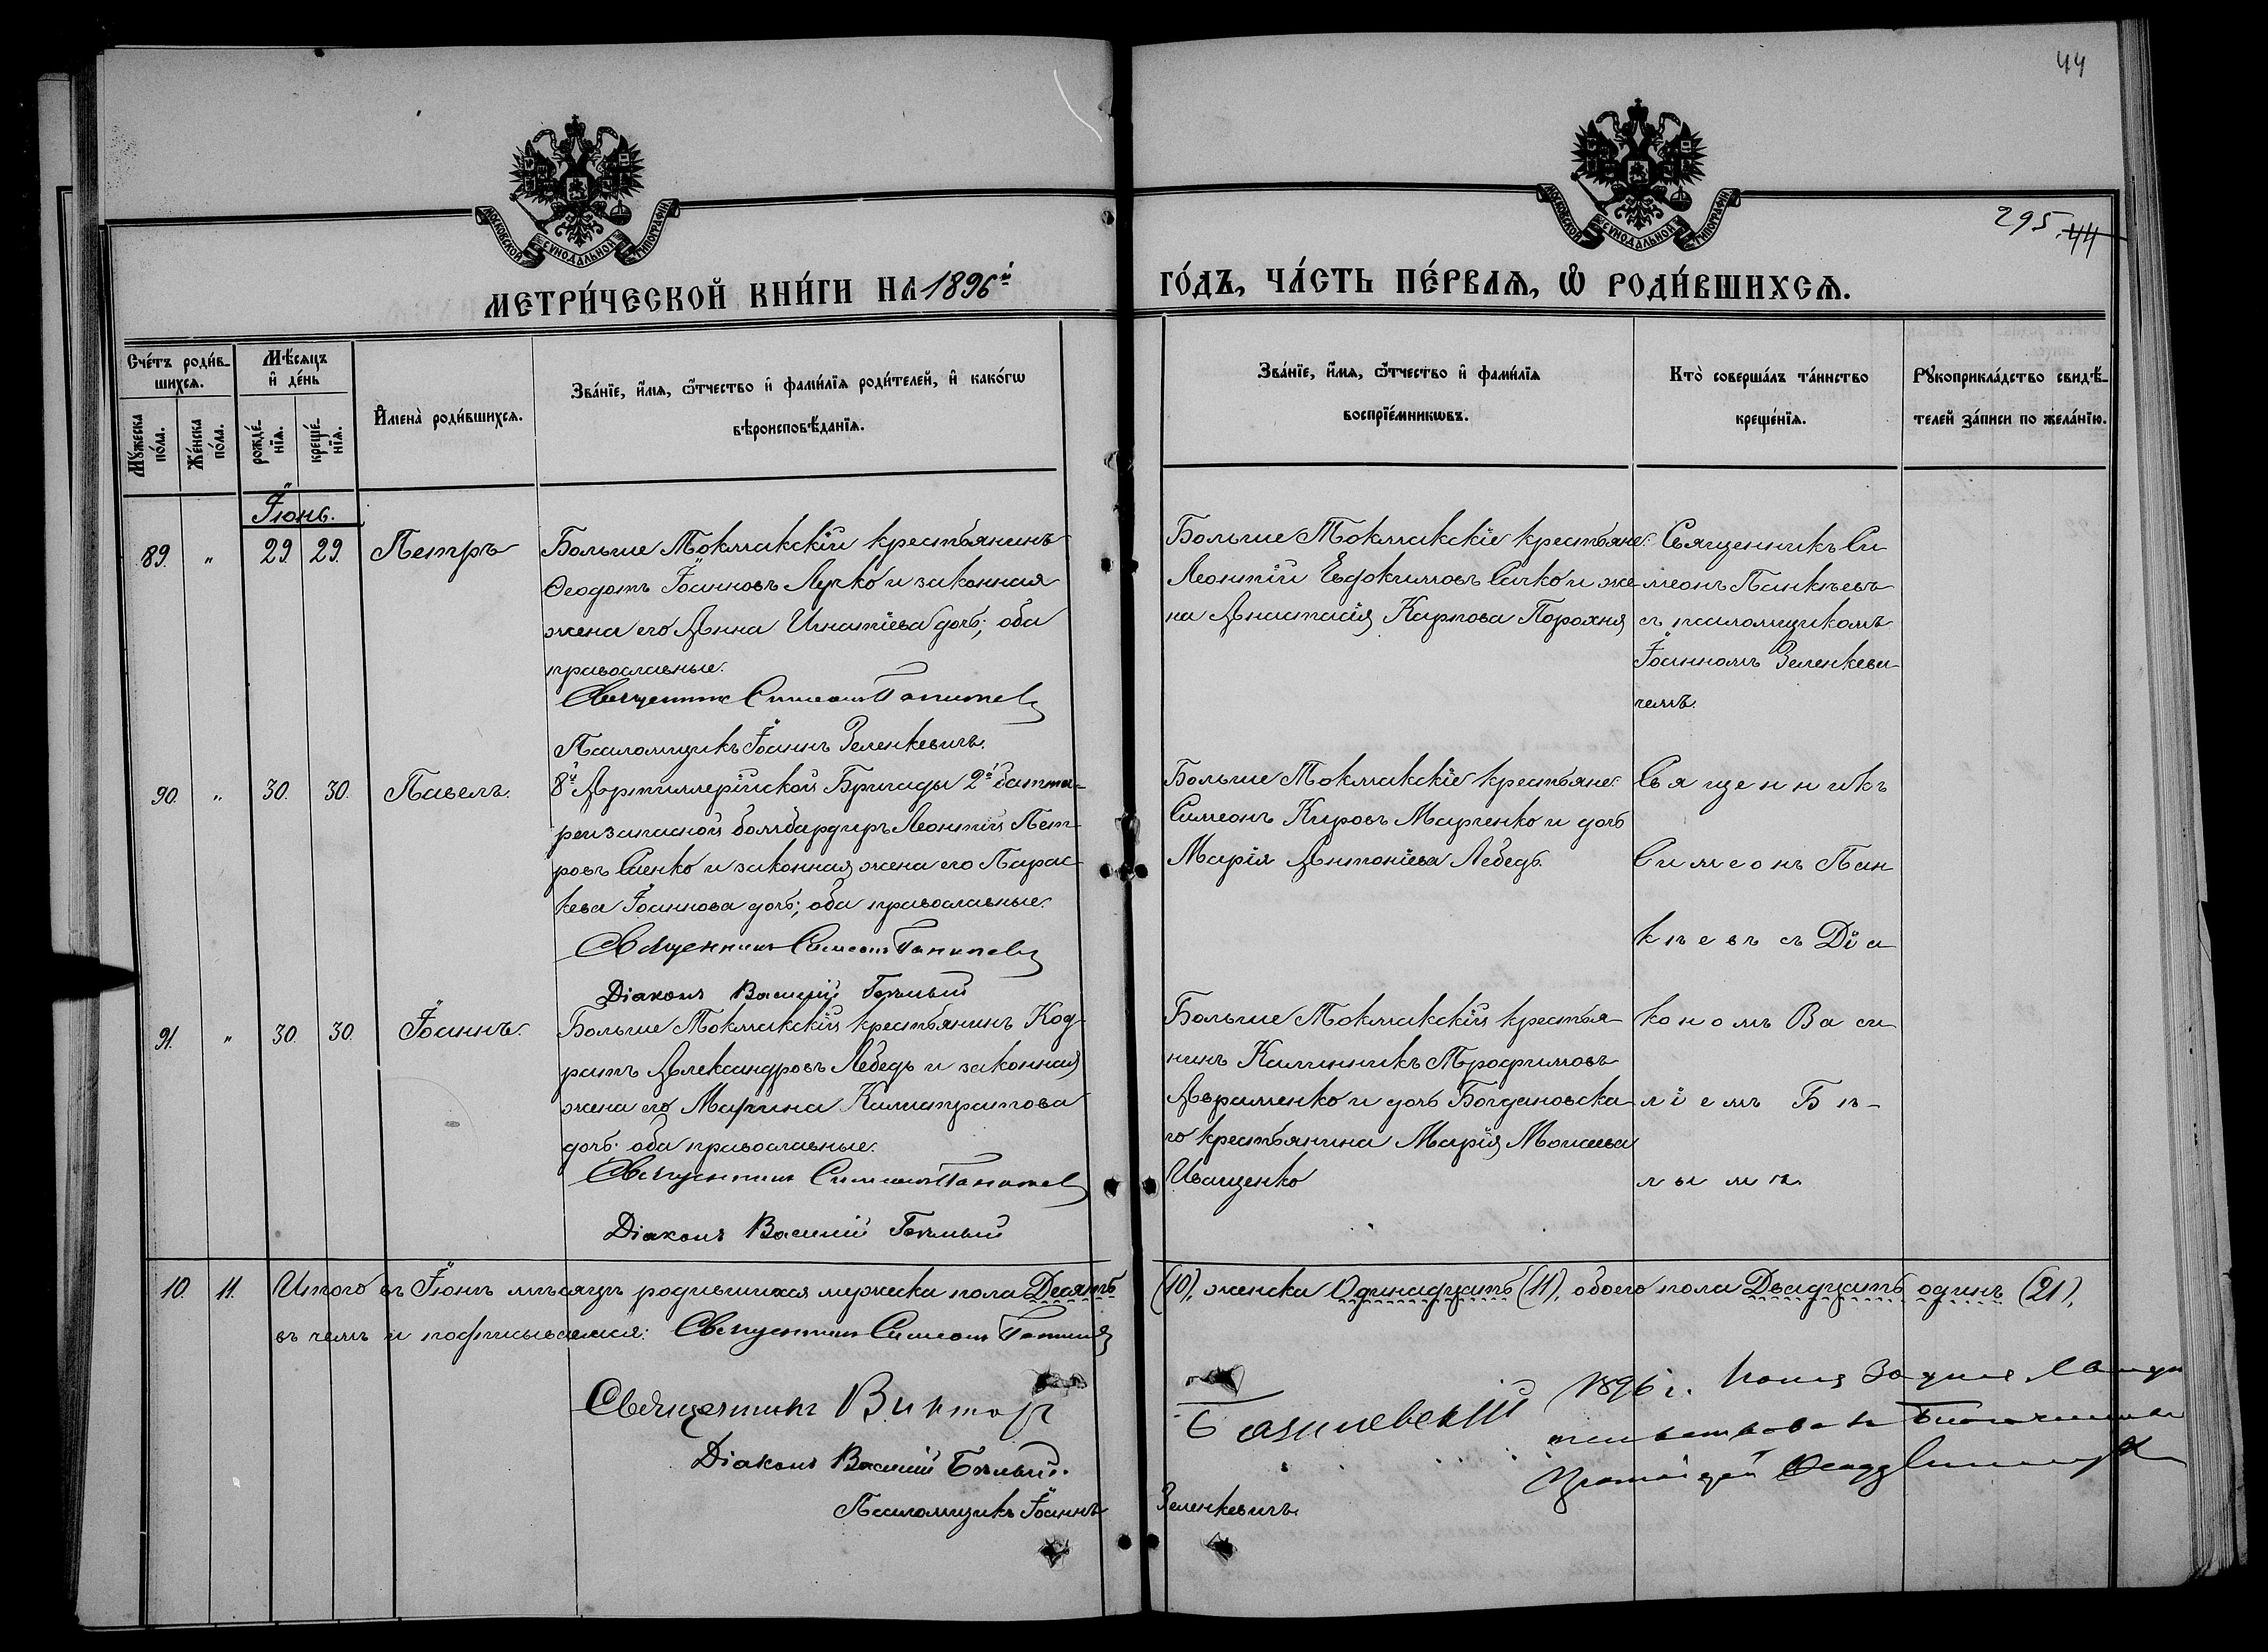 44
295 44
МОСКОВСКОЙ СѴНОДАЛЬНОЙ ТИПОГРАФІИ
МОСКОВСКОЙ СѴНОДАЛЬНОЙ ТИПОГРАФІИ
МЕТРИ́ЧЕСКОЙ КНИ́ГИ НА 1896й ГО́ДЪ, ЧА́СТЬ ПЕ́РВАѦ, Ѡ҆ РОДИ́ВШИХСѦ.
Счéтъ роди́в-
шихсѧ.
Мꙋ́жеска по́ла.
Же́нска по́ла.
Мѣ́сѧцъ
и҆ де́нь
рожде́-
нїѧ.
креще́-
нїѧ.
И҆мена̀ роди́вшихсѧ.
Зва́нїе, и҆́мѧ, ѻ҆́тчество и҆ фами́лїѧ роди́телей, и҆ како́гѡ
вѣроисповѣ́данїѧ.
Зва́нїе, и҆́мѧ, ѻ҆́тчество и҆ фами́лїѧ
воспрїе́мникѡвъ.
Кто̀ соверша́лъ та́инство
креще́нїѧ.
Рꙋкоприкла́дство свидѣ́-
телей за́писи по жела́нїю.
Іюнь.
89. " 29 29. Петръ
Больше Токмакскій крестьянинъ
Ѳеодотъ Іоанновъ Лучко и законная
жена его Анна Игнатіева дочь; оба
православные.
Священник Симеонъ Панкѣев
Псаломщикъ Іоаннъ Зеленкевичъ.
Больше Токмакскіе крестьяне:
Леонтій Евдокимовъ Сачко и же-
на Анастасія Карпова Порохня
Священникъ Си
меонъ Панкѣевъ
съ псаломщикомъ
Іоанномъ Зеленкеви-
чемъ.
90. " 30. 30. Павелъ.
8й Артиллерійской Бригады 2й батта-
реи запасной бомбардиръ Леонтій Пет-
ровъ Саенко и законная жена его Парас-
кева Іоаннова дочь; оба православные.
Священникъ Симеонъ Панкѣев
Діаконъ Василій Бѣлый
Больше Токмакскіе крестьяне:
Симеонъ Кировъ Марченко и дочь
Марія Антоніева Лебедь.
Священникъ
Симеонъ Пан
кѣевъ съ Діа
кономъ Васи
ліемъ Бѣ-
лымъ.
91. " 30. 30. Іоаннъ.
Больше Токмакскій крестьянинъ Код-
ратъ Александровъ Лебедь и законная
жена его Марина Калистратова
дочь; оба православные.
Священникъ Симеонъ Панкѣев
Діаконъ Василій Бѣлый
Больше Токмакскій крестья-
нинъ Калинникъ Трофимовъ
Авраменко и дочь Богдановска-
го крестьянина Марія Моисеева
Иващенко
10. 11. Итого въ Іюнѣ мѣсяцѣ родившихся мужеска пола Десять (10), женска Одинадцать (11), обоего пола Двадцать одинъ (21),
въ чемъ и подписываемся: Священникъ Симеонъ Панкѣев
Священникъ Викторъ Базилевскій
Діаконъ Василій Бѣлый.
Псаломщикъ Іоаннъ Зеленкевичъ.
1896 г.